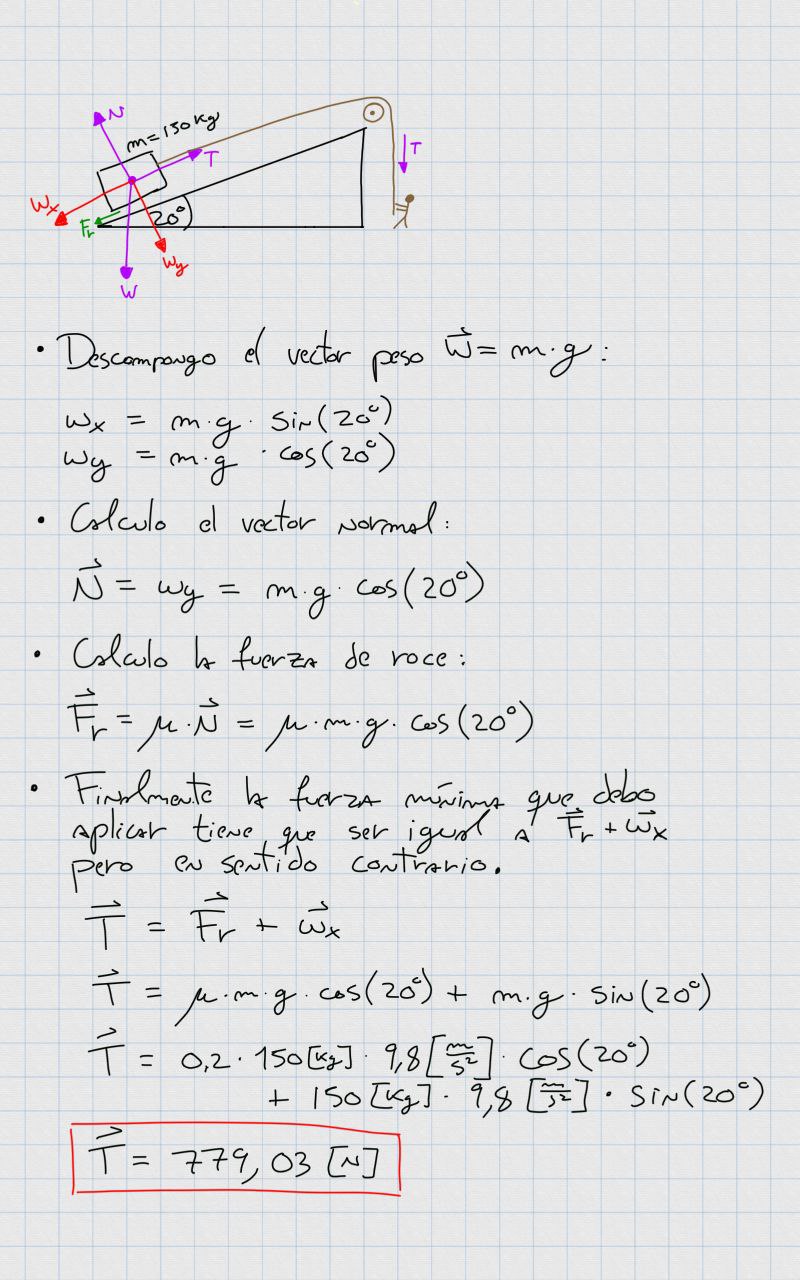 N
m=150kg
T
T
Wx
Fr
20°
Wy
W
• Descompongo el vector peso W⃗ = m·g:
wx = m·g· sin(20°)
wy = m·g ·cos(20°)
• Calculo el vector normal:
N⃗ = wy = m·g· cos(20°)
• Calculo la fuerza de roce:
F⃗r = μ·N⃗ = μ·m·g· cos(20°)
• Finalmente la fuerza mínima que debo
aplicar tiene que ser igual a F⃗r + w⃗x
pero en sentido contrario.
T⃗ = F⃗r + w⃗x
T⃗ = μ·m·g·cos(20°) + m·g·sin(20°)
T⃗ = 0,2·150[kg]·9,8[m/s²]·cos(20°)
+ 150[kg]·9,8[m/s²]·sin(20°)
T⃗ = 779,03 [N]